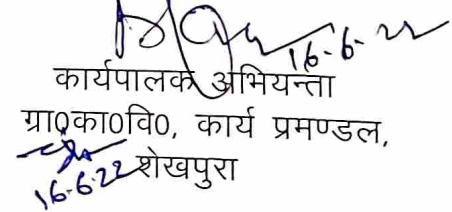 16-6-22
कार्यपालक अभियन्ता
ग्रा0का0वि0, कार्य प्रमण्डल,
शेखपुरा
16-6-22